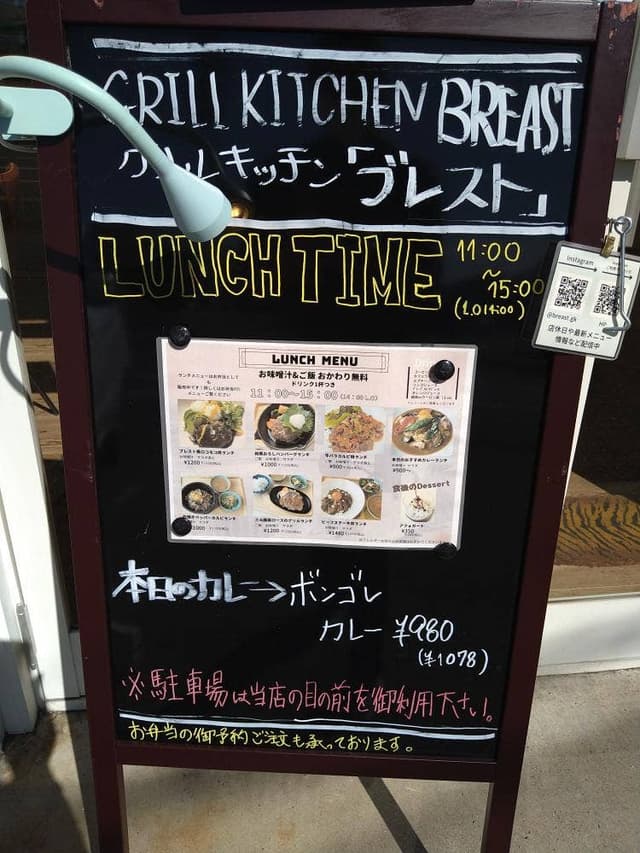 GRILL KITCHEN BREAST
グリルキッチン「ブレスト」
LUNCH TIME 11:00
~
15:00
(L.O14:00)
Instagram
@breast.gk
HP
店休日や最新メニュー
情報など配信中
LUNCH MENU
お味噌汁&ご飯 おかわり無料
ドリンク1杯つき
11:00~15:00(14:00 L.O)
ブレスト風ロコモコ丼ランチ
¥1200
和風おろしハンバーグランチ
¥1000
牛バラカルビ焼ランチ
¥900
本日のおすすめカレーランチ
¥900~
食後のDessert
¥1200
ビーフステーキ丼ランチ
¥1480
アフォガード
¥350
本日のカレー→ボンゴレ
カレー ¥980
(¥1078)
※駐車場は当店の目の前を御利用下さい。
お弁当の御予約ご注文も承っております。